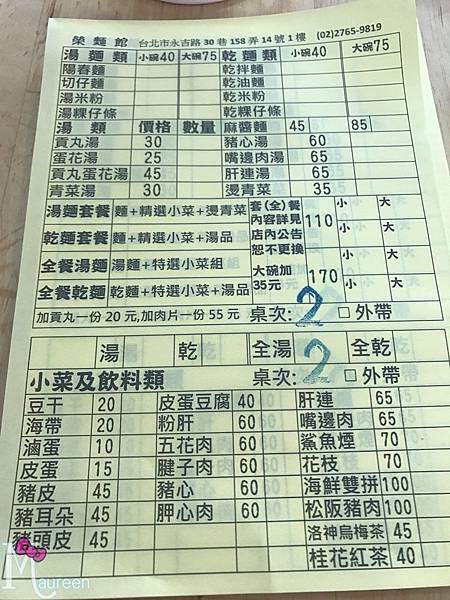 榮麵館 台北市永吉路30巷158弄14號1樓 (02)2765-9819
湯麵類 小碗40 大碗75 乾麵類 小碗40 大碗75
陽春麵 乾拌麵
切仔麵 乾油麵
湯米粉 乾米粉
湯粿仔條 乾粿仔條
湯 類 價格 數量 麻醬麵 45 85
貢丸湯 30 豬心湯 60
蛋花湯 25 嘴邊肉湯 65
貢丸蛋花湯 45 肝連湯 65
青菜湯 30 燙青菜 35
湯麵套餐 麵+精選小菜+燙青菜 套(全)餐 小 大
乾麵套餐 麵+精選小菜+湯品 內容詳見 店內公告 恕不更換 110 小 大
全餐湯麵 湯麵+特選小菜組 小 大
全餐乾麵 乾麵+特選小菜+湯品 大碗加 35元 170 小 大
加貢丸一份20元,加肉片一份55元 桌次: 2 □外帶
湯 乾 全湯 全乾
小菜及飲料類 桌次: 2 □外帶
豆干 20 皮蛋豆腐 40 肝連 65
海帶 20 粉肝 60 嘴邊肉 65
滷蛋 10 五花肉 60 鯊魚煙 70
皮蛋 15 腱子肉 60 花枝 70
豬皮 45 豬心 60 海鮮雙拼 100
豬耳朵 45 胛心肉 60 松阪豬肉 100
豬頭皮 45 洛神烏梅茶 45
桂花紅茶 40
Maureen